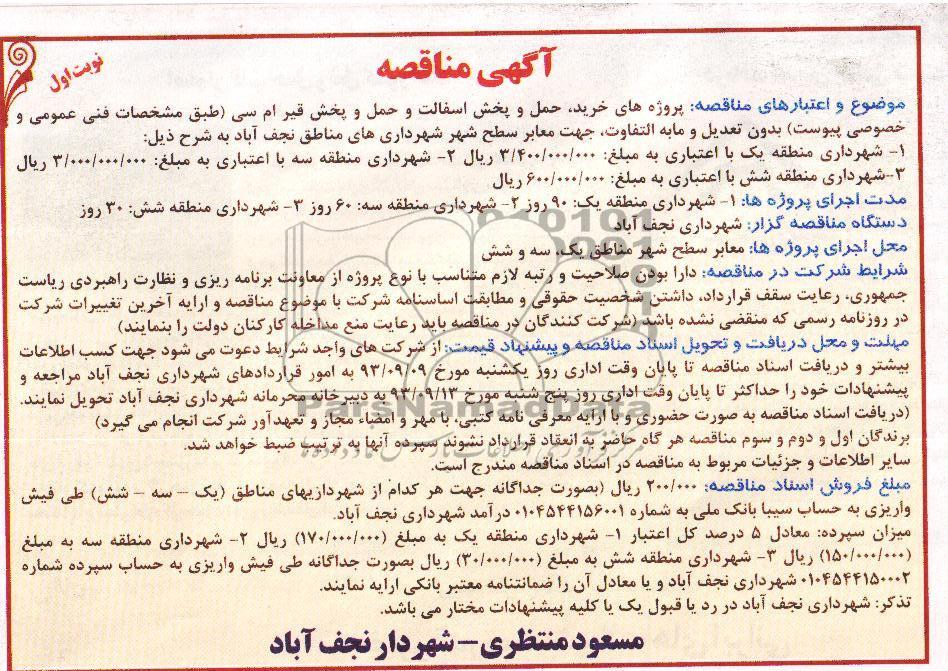 آگهی مناقصه
نوبت اول
موضوع و اعتبارهای مناقصه: پروژه های خرید، حمل و پخش اسفالت و حمل و پخش قیر ام سی (طبق مشخصات فنی عمومی و
خصوصی پیوست) بدون تعدیل و مابه التفاوت، جهت معابر سطح شهر شهرداری های مناطق نجف آباد به شرح ذیل:
۱- شهرداری منطقه یک با اعتباری به مبلغ: ۳/۴۰۰/۰۰۰/۰۰۰ ریال ۲- شهرداری منطقه سه با اعتباری به مبلغ: ۳/۰۰۰/۰۰۰/۰۰۰ ریال
۳-شهرداری منطقه شش با اعتباری به مبلغ: ۶۰۰/۰۰۰/۰۰۰ ریال
مدت اجرای پروژه ها: ۱- شهرداری منطقه یک: ۹۰ روز ۲- شهرداری منطقه سه: ۶۰ روز ۳- شهرداری منطقه شش: ۳۰ روز
دستگاه مناقصه گزار: شهرداری نجف آباد
محل اجرای پروژه ها: معابر سطح شهر مناطق یک، سه و شش
شرایط شرکت در مناقصه: دارا بودن صلاحیت و رتبه لازم متناسب با نوع پروژه از معاونت برنامه ریزی و نظارت راهبردی ریاست
جمهوری، رعایت سقف قرارداد، داشتن شخصیت حقوقی و مطابقت اساسنامه شرکت با موضوع مناقصه و ارایه آخرین تغییرات شرکت
در روزنامه رسمی که منقضی نشده باشد (شرکت کنندگان در مناقصه باید رعایت منع مداخله کارکنان دولت را بنمایند)
مهلت و محل دریافت و تحویل اسناد مناقصه و پیشنهاد قیمت: از شرکت های واجد شرایط دعوت می شود جهت کسب اطلاعات
بیشتر و دریافت اسناد مناقصه تا پایان وقت اداری روز یکشنبه مورخ ۹۳/۰۹/۰۹ به امور قراردادهای شهرداری نجف آباد مراجعه و
پیشنهادات خود را حداکثر تا پایان وقت اداری روز پنج شنبه مورخ ۹۳/۰۹/۱۳ به دبیرخانه محرمانه شهرداری نجف آباد تحویل نمایند.
(دریافت اسناد مناقصه به صورت حضوری و با ارایه معرفی نامه کتبی، با مهر و امضاء مجاز و تعهدآور شرکت انجام می گیرد)
برندگان اول و دوم و سوم مناقصه هر گاه حاضر به انعقاد قرارداد نشوند سپرده آنها به ترتیب ضبط خواهد شد.
سایر اطلاعات و جزئیات مربوط به مناقصه در اسناد مناقصه مندرج است.
مبلغ فروش اسناد مناقصه: ۲۰۰/۰۰۰ ریال (بصورت جداگانه جهت هر کدام از شهردازیهای مناطق (یک – سه – شش) طی فیش
واریزی به حساب سیبا بانک ملی به شماره ۰۱۰۴۵۴۴۱۵۶۰۰۱ درآمد شهرداری نجف آباد.
میزان سپرده: معادل ۵ درصد کل اعتبار ۱- شهرداری منطقه یک به مبلغ (۱۷۰/۰۰۰/۰۰۰) ریال ۲- شهرداری منطقه سه به مبلغ
(۱۵۰/۰۰۰/۰۰۰) ریال ۳- شهرداری منطقه شش به مبلغ (۳۰/۰۰۰/۰۰۰) ریال بصورت جداگانه طی فیش واریزی به حساب سپرده شماره
۰۱۰۴۵۴۴۱۵۰۰۰۲ شهرداری نجف آباد و یا معادل آن را ضمانتنامه معتبر بانکی ارایه نمایند.
تذکر: شهرداری نجف آباد در رد یا قبول یک یا کلیه پیشنهادات مختار می باشد.
مسعود منتظری – شهردار نجف آباد
ParsNamadData